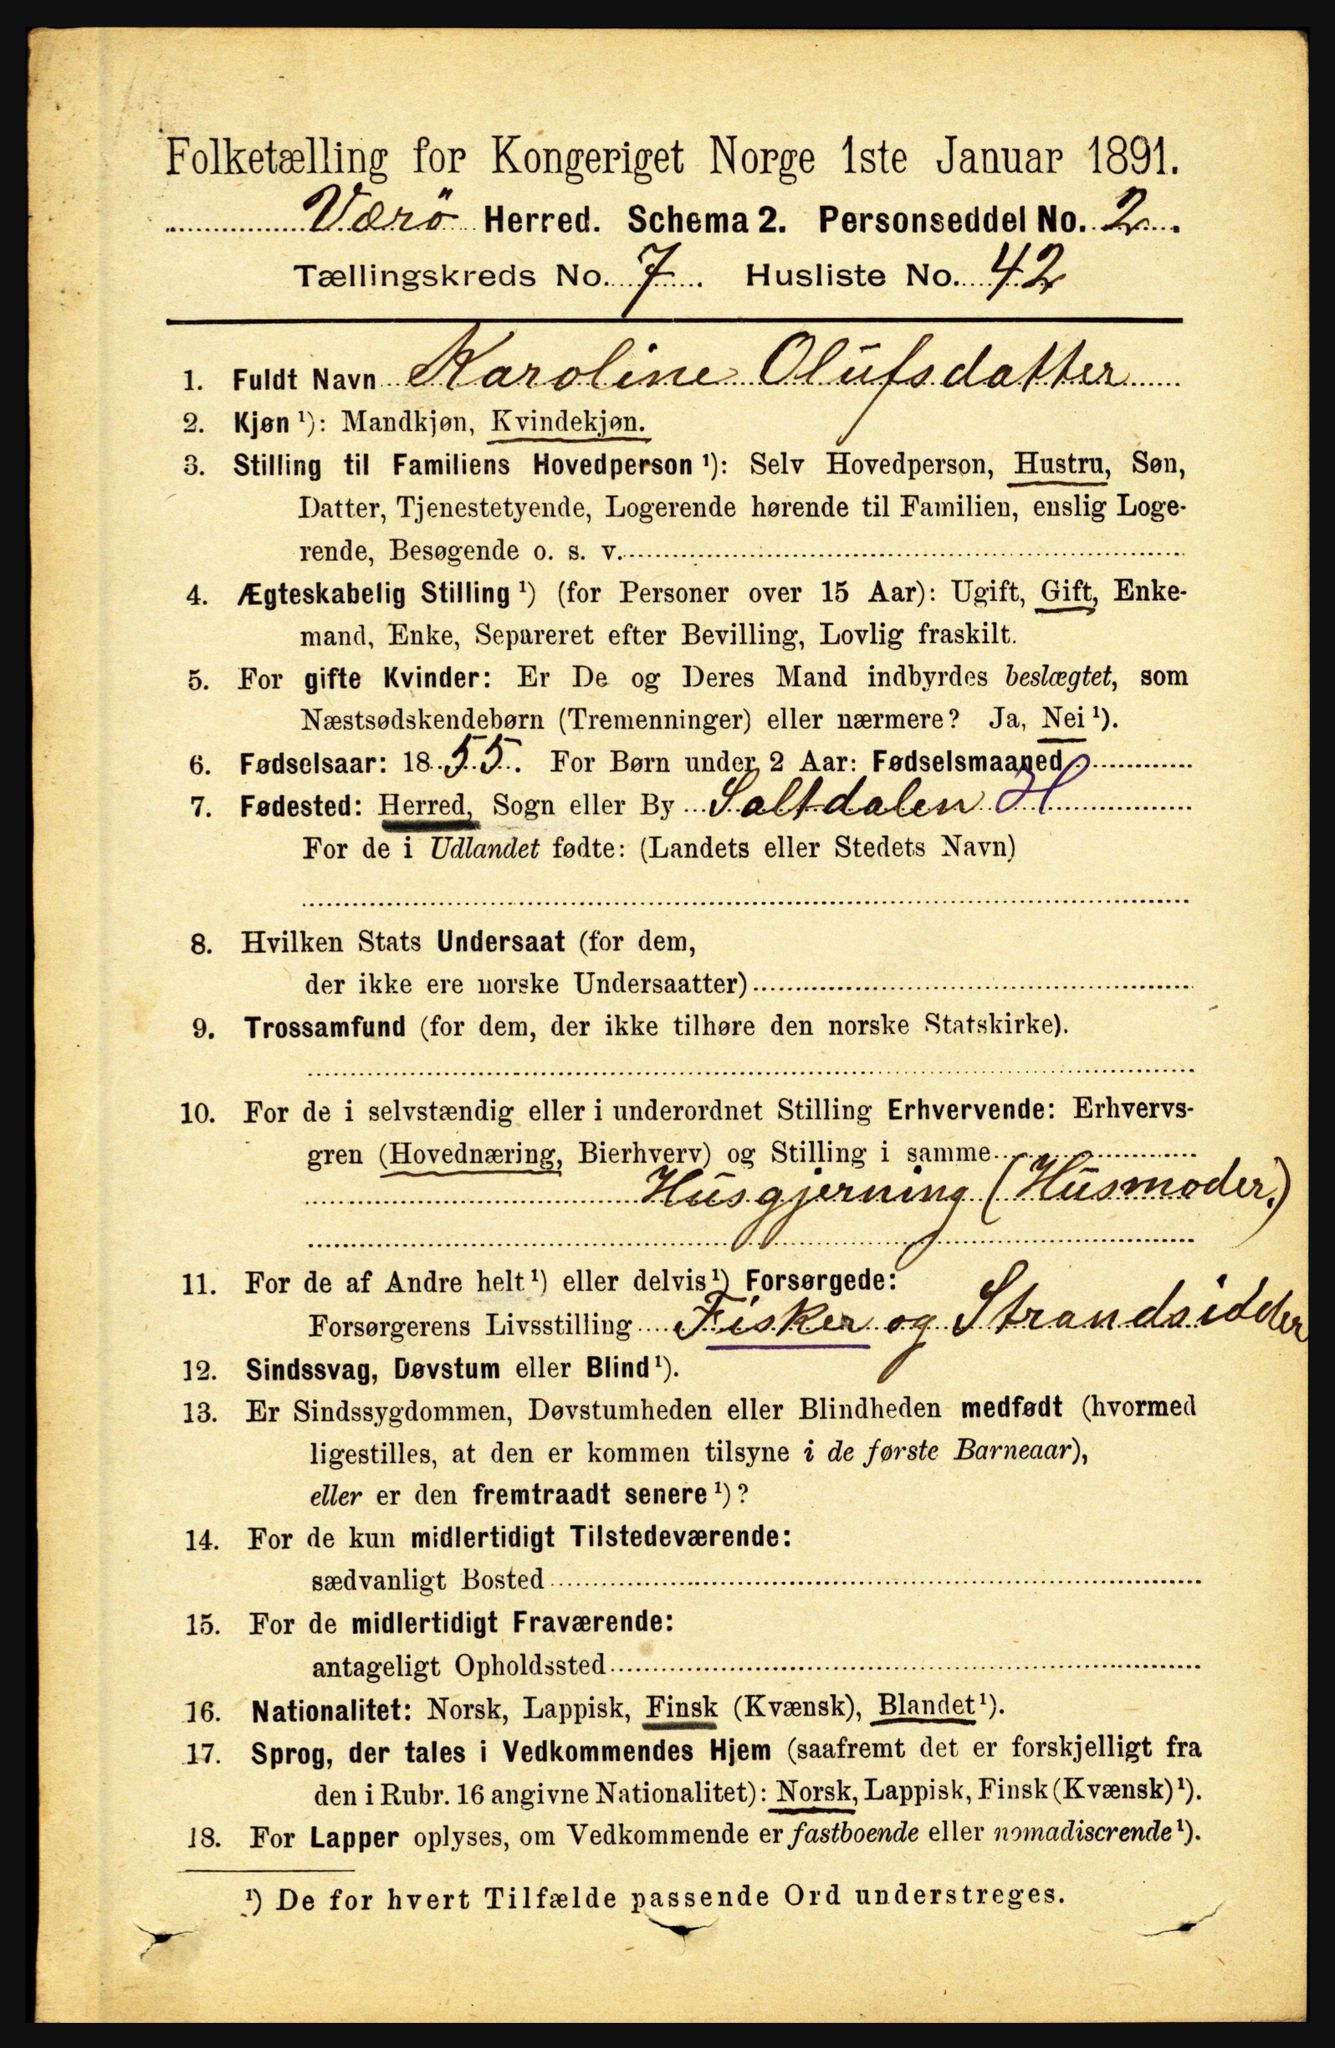 Folketælling for Kongeriget Norge 1ste Januar 1891.
Værö Herred. Schema 2. Personseddel No. 2.
Tællingskreds No. 7. Husliste No. 42
1. Fuldt Navn Karoline Olufsdatter
2. Kjøn ¹): Mandkjøn, Kvindekjøn.
3. Stilling til Familiens Hovedperson ¹): Selv Hovedperson, Hustru, Søn,
Datter, Tjenestetyende, Logerende hørende til Familien, enslig Loge-
rende, Besøgende o. s. v.
4. Ægteskabelig Stilling ¹) (for Personer over 15 Aar): Ugift, Gift, Enke-
mand, Enke, Separeret efter Bevilling, Lovlig fraskilt.
5. For gifte Kvinder: Er De og Deres Mand indbyrdes beslægtet, som
Næstsødskendebørn (Tremenninger) eller nærmere? Ja, Nei ¹).
6. Fødselsaar: 1855. For Børn under 2 Aar: Fødselsmaaned
7. Fødested: Herred, Sogn eller By Saltdalen H
For de i Udlandet fødte: (Landets eller Stedets Navn)
8. Hvilken Stats Undersaat (for dem,
der ikke ere norske Undersaatter)
9. Trossamfund (for dem, der ikke tilhøre den norske Statskirke).
10. For de i selvstændig eller i underordnet Stilling Erhvervende: Erhvervs-
gren (Hovednæring, Bierhverv) og Stilling i samme
Husgjerning (Husmoder.)
11. For de af Andre helt ¹) eller delvis ¹) Forsørgede:
Forsørgerens Livsstilling Fisker og Strandsidder
12. Sindssvag, Døvstum eller Blind ¹).
13. Er Sindssygdommen, Døvstumheden eller Blindheden medfødt (hvormed
ligestilles, at den er kommen tilsyne i de første Barneaar),
eller er den fremtraadt senere ¹)?
14. For de kun midlertidigt Tilstedeværende:
sædvanligt Bosted
15. For de midlertidigt Fraværende:
antageligt Opholdssted
16. Nationalitet: Norsk, Lappisk, Finsk (Kvænsk), Blandet ¹).
17. Sprog, der tales i Vedkommendes Hjem (saafremt det er forskjelligt fra
den i Rubr. 16 angivne Nationalitet): Norsk, Lappisk, Finsk (Kvænsk) ¹).
18. For Lapper oplyses, om Vedkommende er fastboende eller nomadiserende ¹).
¹) De for hvert Tilfælde passende Ord understreges.